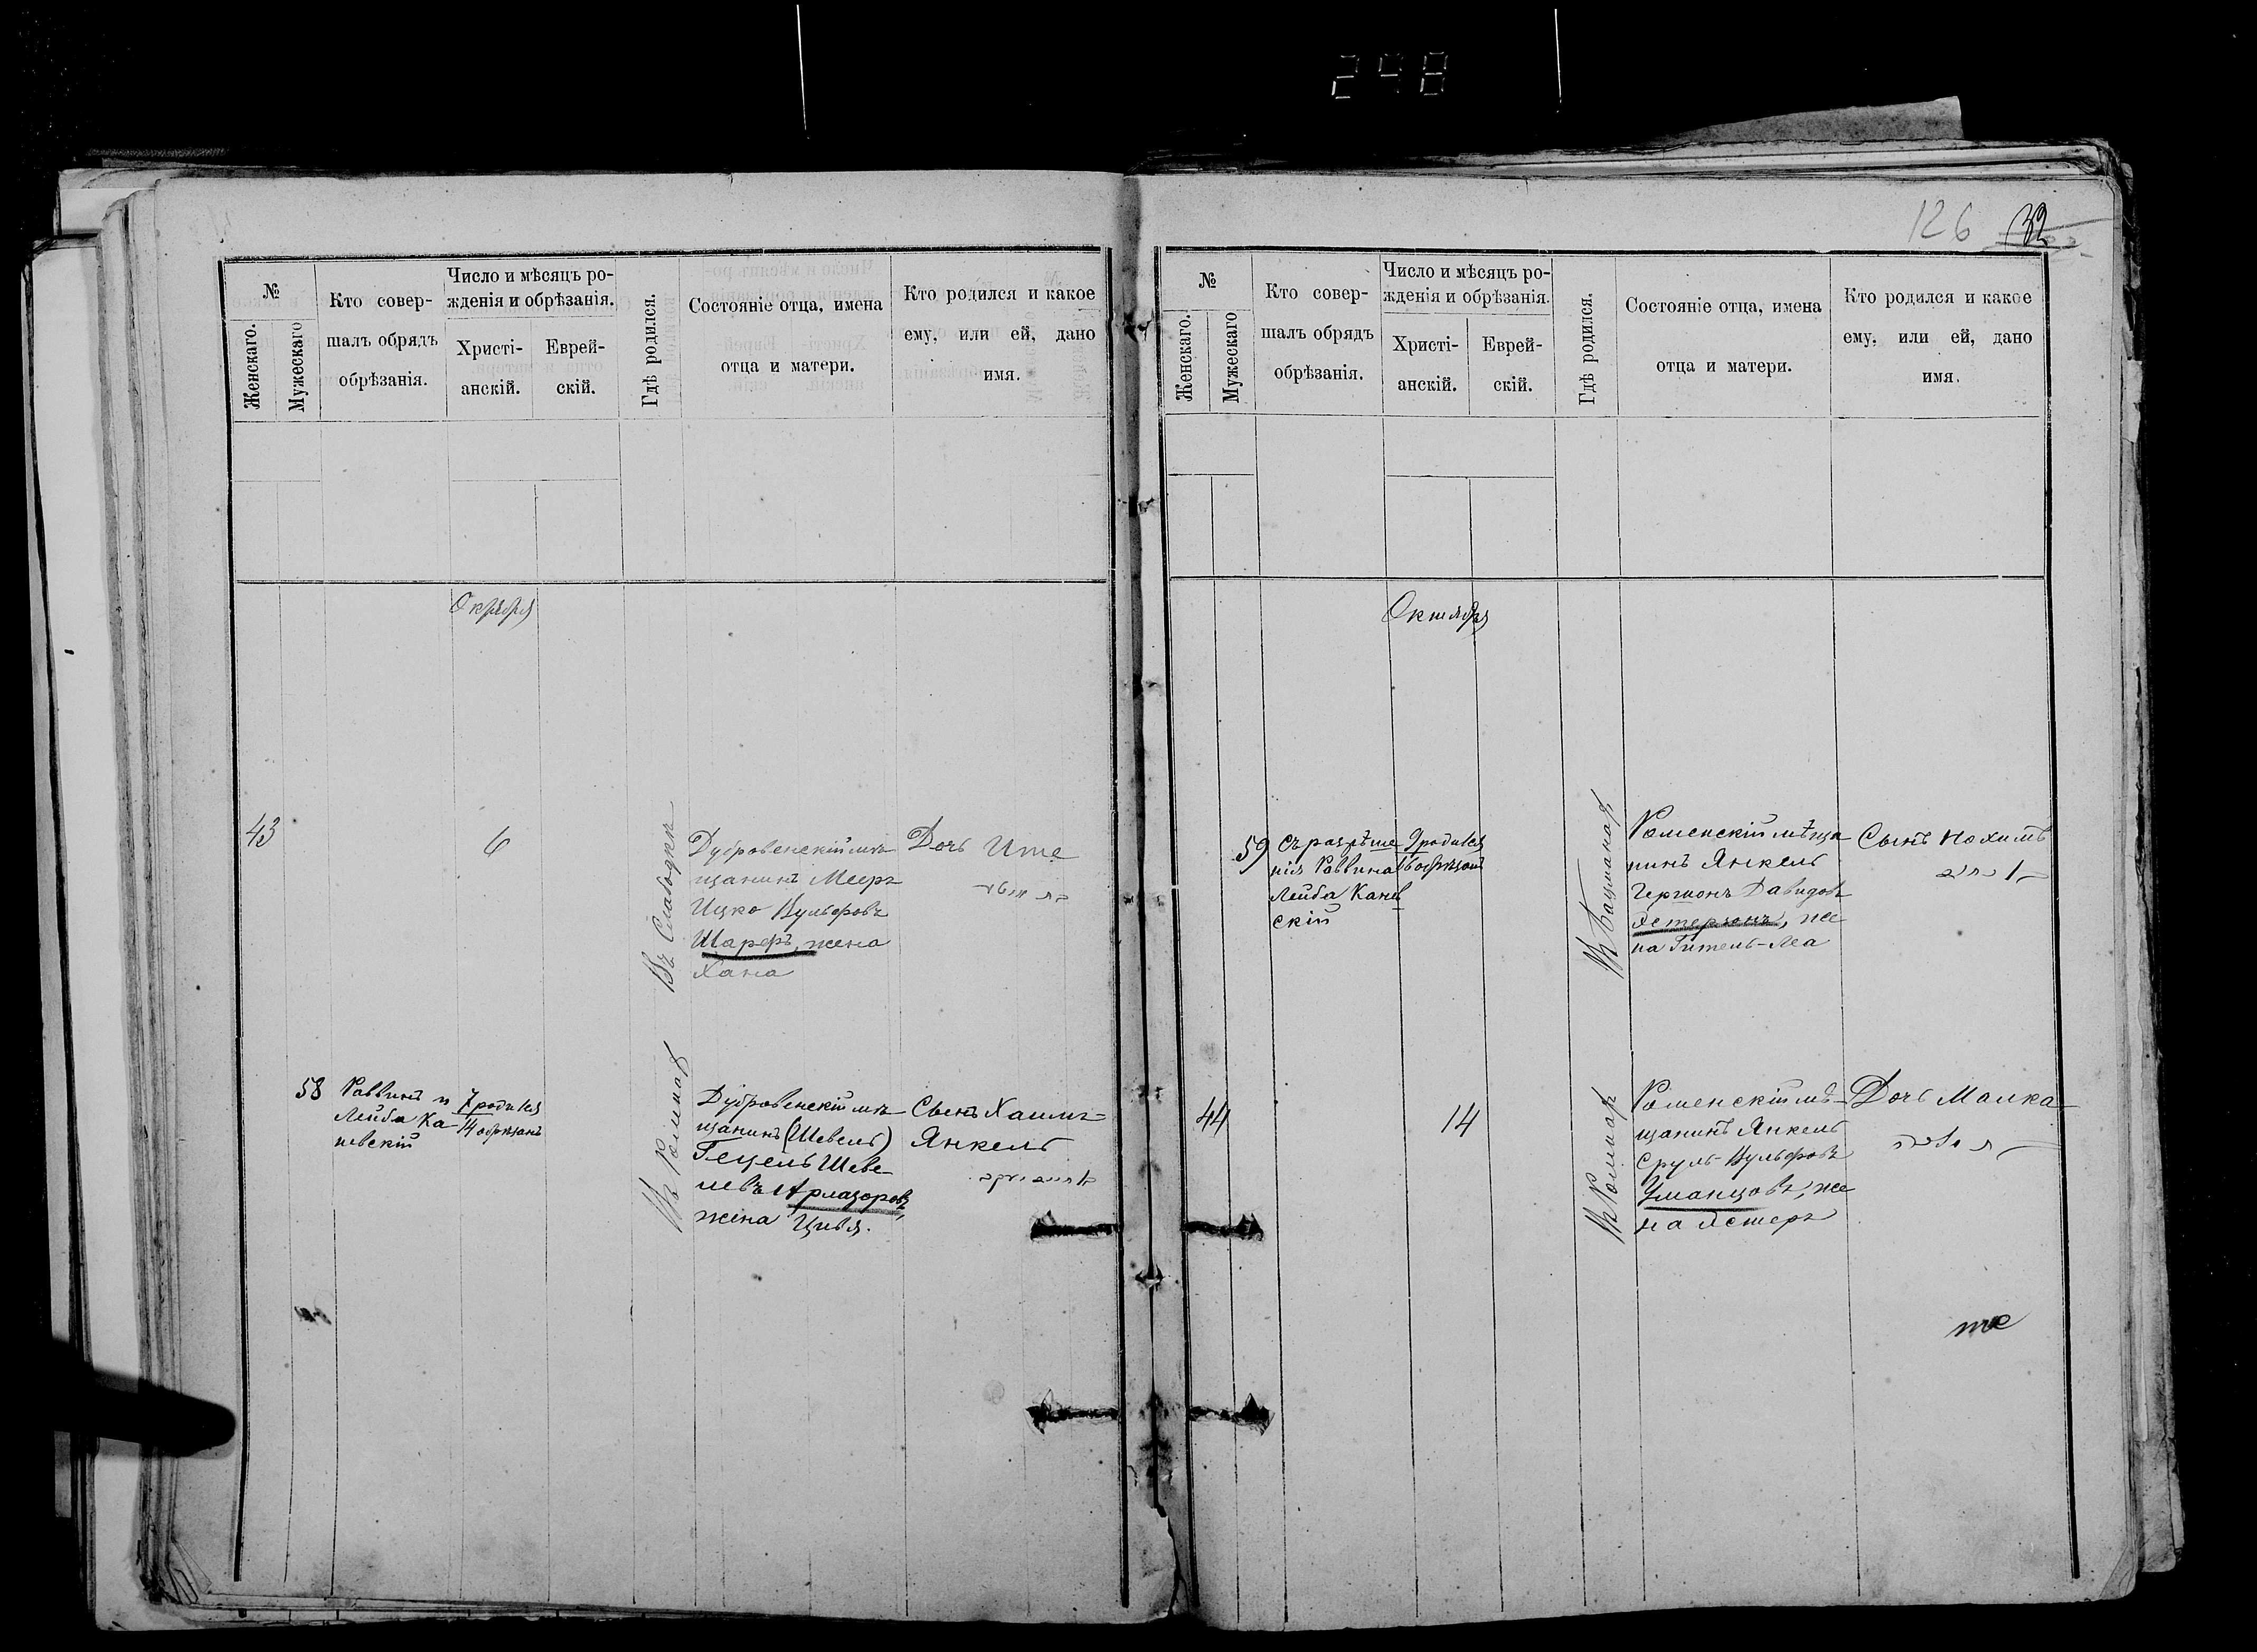 248
126 32
№
Женскаго.
Мужескаго
Кто совер-
шалъ обрядъ
обрѣзанія.
Число и мѣсяцъ ро-
жденія и обрѣзанія.
Христі-
анскій.
Еврей-
скій.
Гдѣ родился.
Состояніе отца, имена
отца и матери.
Кто родился и какое
ему, или ей, дано
имя.
Октября
43
6
Въ Слободкѣ
Дубровенскій мѣ-
щанинъ Меер
Ицко Вульфовъ
Шарфъ, жена
Хана
Дочь Ите
58
Раввинъ и
Лейба Ка-
невскій
7 родился
14 обрѣзанъ
Въ Ромнах
Дубровенскій мѣ-
щанинъ (Шевель)
Гецель Шеве-
левъ
жена Цивя.
Сынъ Хаимъ-
Янкель
№
Женскаго.
Мужескаго
Кто совер-
шалъ обрядъ
обрѣзанія.
Число и мѣсяцъ ро-
жденія и обрѣзанія.
Христі-
анскій.
Еврей-
скій.
Гдѣ родился.
Состояніе отца, имена
отца и матери.
Кто родился и какое
ему, или ей, дано
имя.
Октября
59
Съ разрѣше
нія Раввина
Лейба Канев
скій
9 родился
16 обрѣзанъ
Роменскій мѣща
нинъ Янкель
Гершонъ Давидовъ
же
на Гитель-Леа
Сынъ Нохимъ
44
14
Въ Ромнах
Роменскій мѣ-
щанинъ Янкель
Сруль Вульфовъ
Уманцовъ, же
на Эстеръ
Дочь Малка